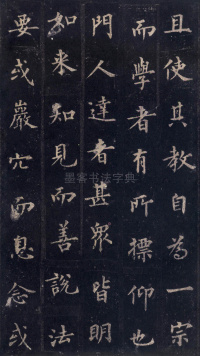 且使其教自為一宗
而學者有所摽仰也
門人達者甚眾皆明
如来知見而善說法
要或巖穴而息念或
墨客书法字典